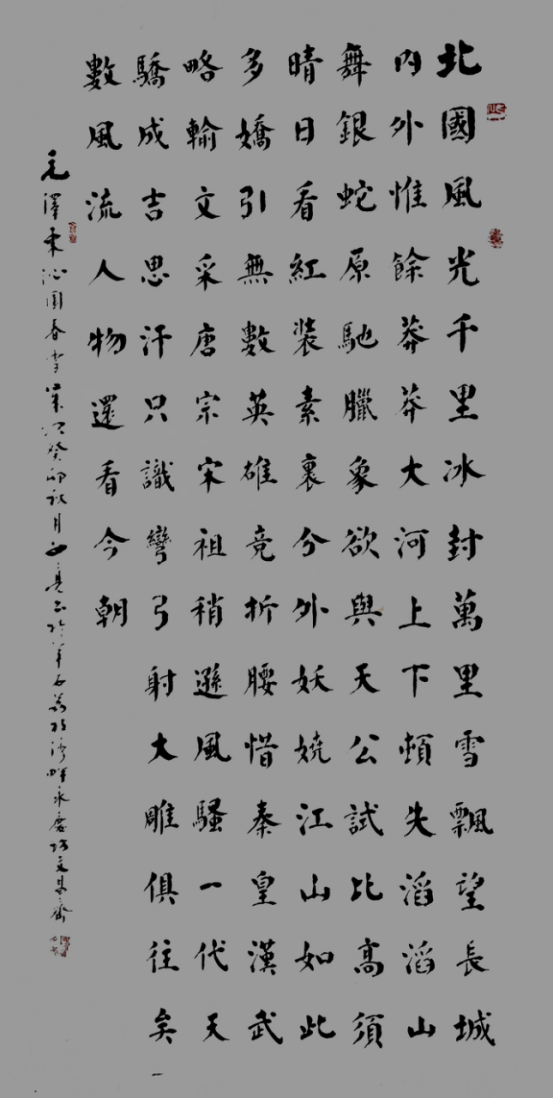 北國風光千里冰封萬里雪飄望長城
内外惟餘莽莽大河上下頓失滔滔山
舞銀蛇原馳臘象欲與天公試比高須
晴日看紅装素裹分外妖嬈江山如此
多嬌引無數英雄竞折腰惜秦皇漢武
略輸文采唐宗宋祖稍遜風騷一代天
驕成吉思汗只識彎弓射大雕俱往矣
數風流人物還看今朝
毛澤東沁園春雪癸卯秋月